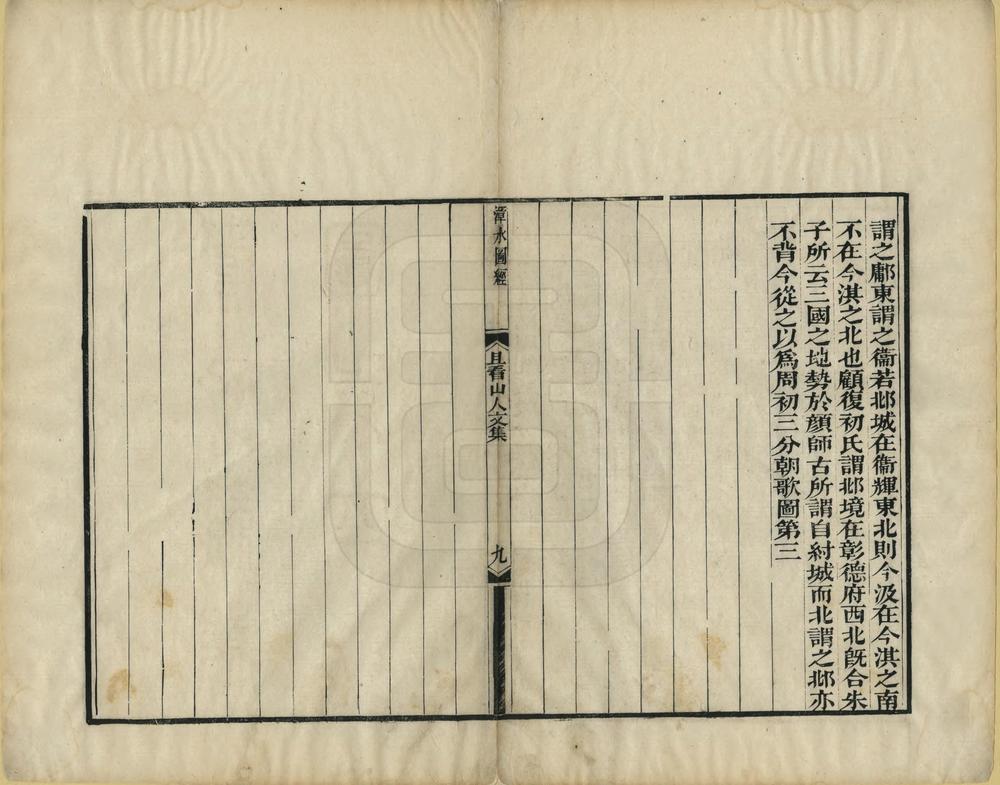 謂之鄘東謂之衞若邶城在衞輝東北則今汲在今淇之南
不在今淇之北也顧復初氏謂邶境在彰德府西北旣合朱
子所云三國之地勢於顏師古所謂自紂城而北謂之邶亦
不背今從之以爲周初三分朝歌圖第三
漳水圖經
且看山人文集
九